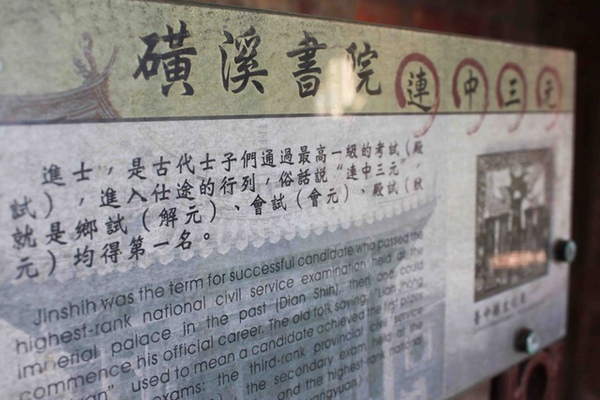 磺溪書院 連中三元
進士，是古代士子們通過最高一級的考試（殿
試），進入仕途的行列，俗話說“連中三元”，
就是鄉試（解元）、會試（會元）、殿試（狀
元）均得第一名。
Jinshih was the term for successful candidate who passed the
highest-rank national civil service examination held at the
imperial palace in the past (Dian Shih), then and could
commence his official career. The old folk saying, "Lian Jhong
used to mean a candidate achieved the first prize
exams: the third-rank provincial civil service
the secondary exam held at the
and the highest-rank national